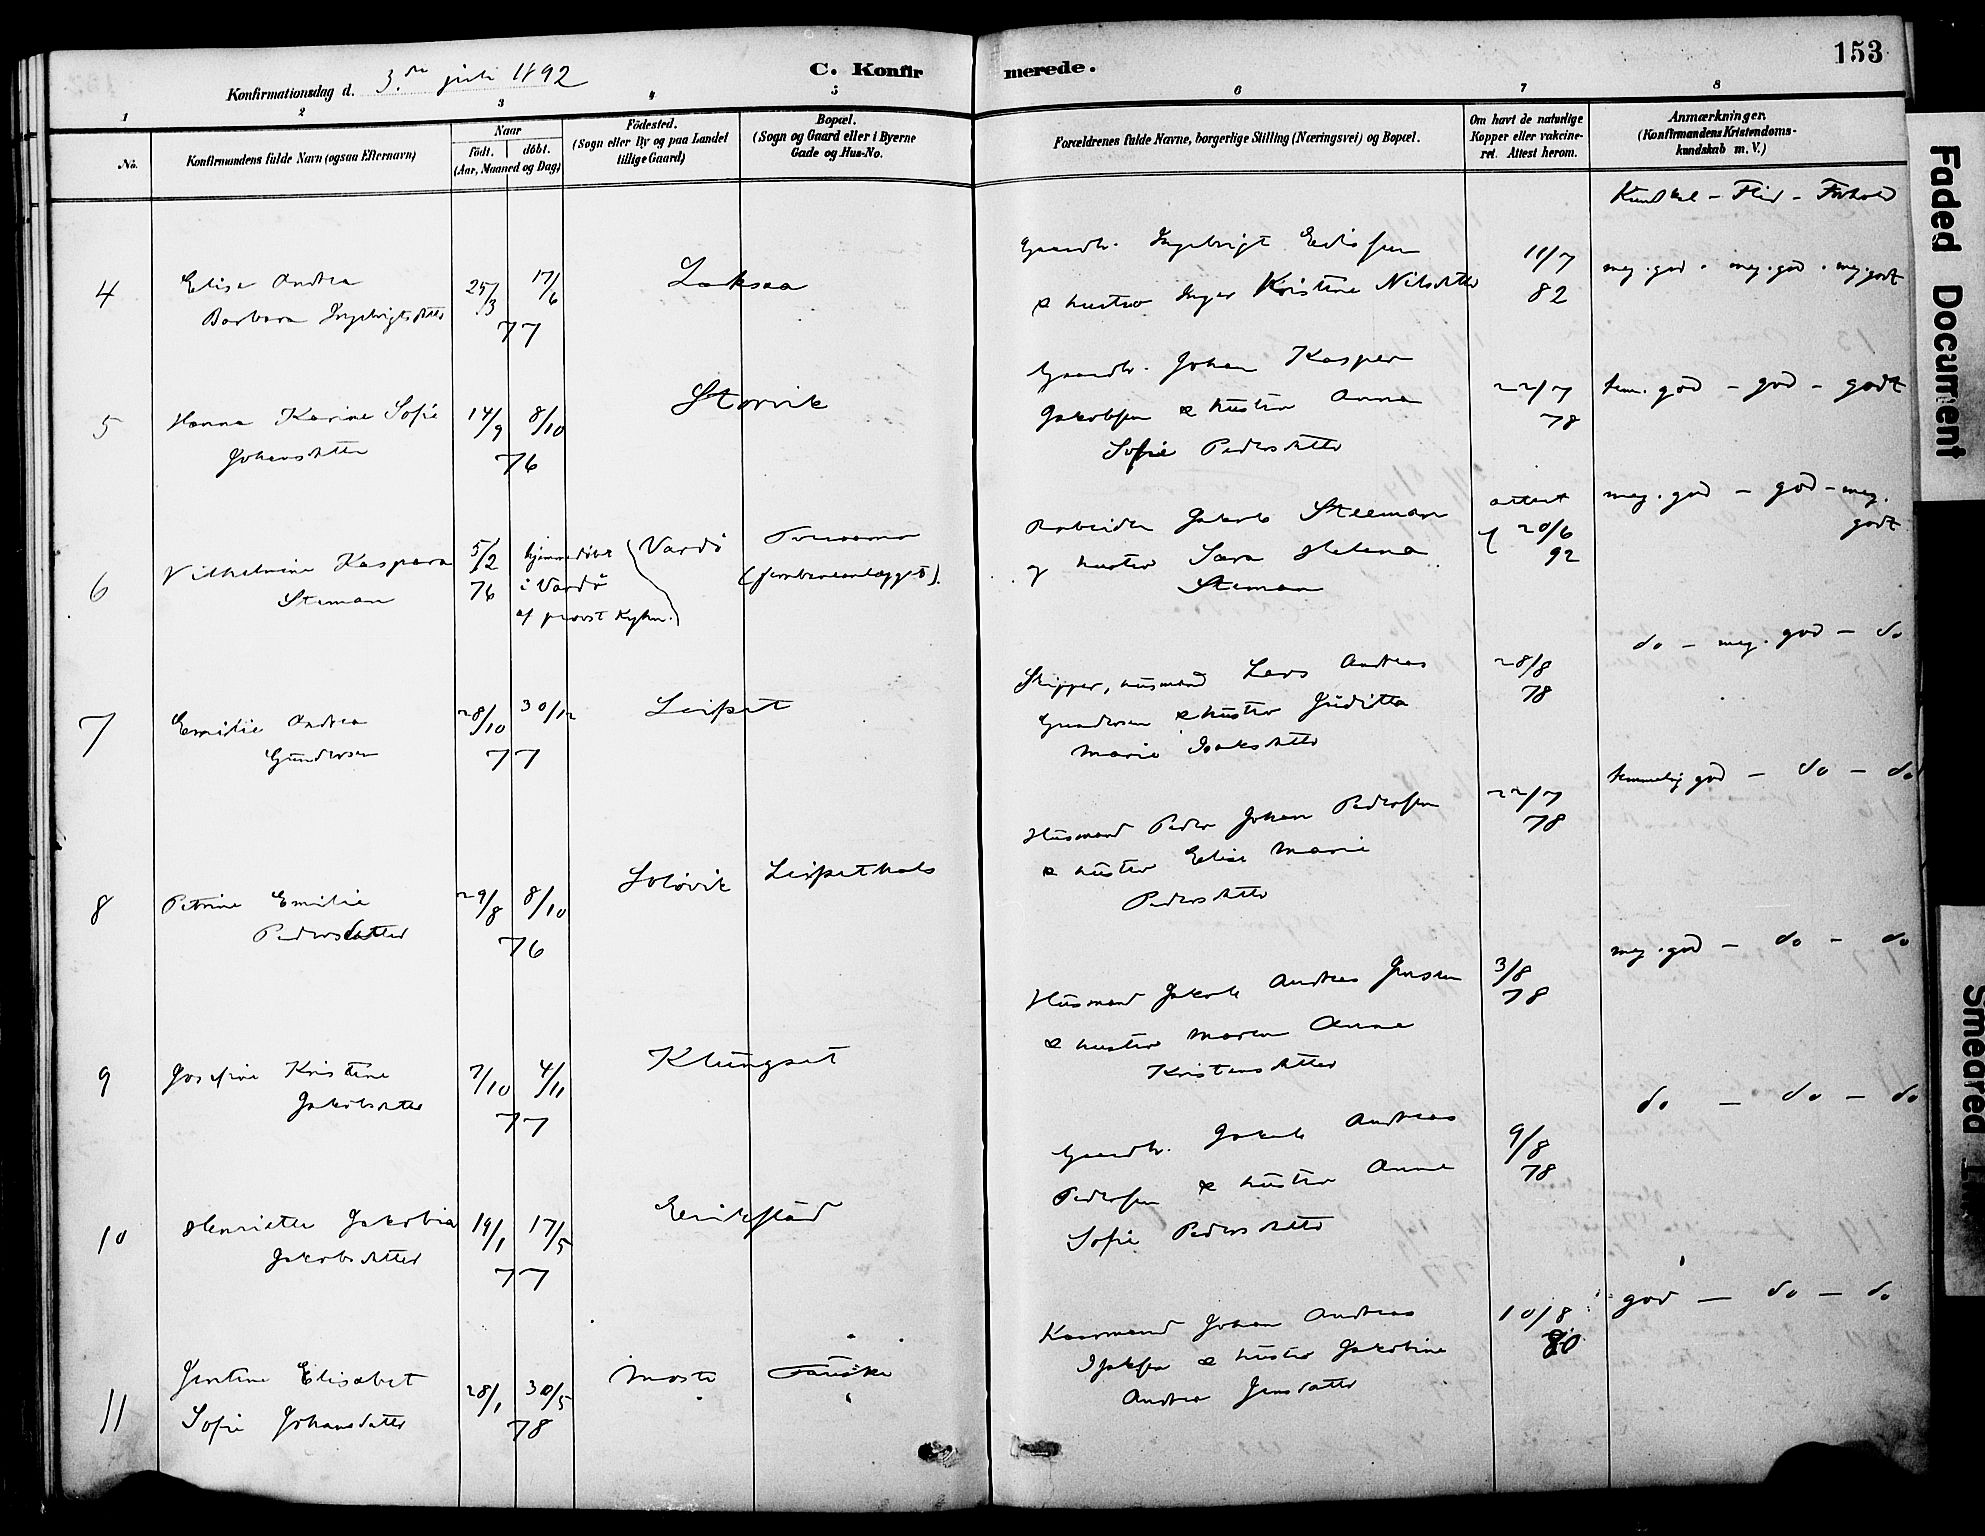 153
C. Konfirmerede.
Konfirmationsdag d. 3die juli 1892
1 2 3 4 5 6 7 8
No.
Konfirmandens fulde Navn (ogsaa Efternavn)
Naar
Födt. döbt.
(Aar, Maaned og Dag)
Födested.
(Sogn eller By og paa Landet
tillige Gaard)
Bopæl.
(Sogn og Gaard eller i Byerne
Gade og Hus-No.
Forældrenes fulde Navne, borgerlige Stilling (Næringsvei) og Bopæl.
Om havt de naturlige
Kopper eller vakcine-
ret. Attest herom.
Anmærkninger.
(Konfirmandens Kristendoms-
kundskab m. V.)
Kundsk - Flid - Forhold
4
Elise Andrea
Barbara Ingebrigtsdatter
25/3 17/6
77
Laksaa
Gaardb. Ingebrigt
& hustro Inger Kristine Nilsdatter
11/7
82
meg. god - meg. god - meg. godt
5
Hanna Karine Sofie
Johansdatter
14/9 8/10
76
Storvik
Gaardb. Johan Kasper
Jakobsen & hustro Anna
Sofie Pedersdatter
22/7
78
tem. god - god - godt
6
Vilhelmine Kaspara
Steman
5/2
76
hjemmedöbt
i Vardö
af provst
Vardö
(jernbaneanlægget).
Arbeider Jakob Steeman
og hustro Sara Helena
Steman
attest
20/6
92
meg. god - god - meg.
godt
7
Emilie Andrea
Gundersen
28/10 30/12
77
Leifset
Skipper, husmand Lars Andreas
Gundersen & hustro Juditta
Marie Isaksdatter
28/8
78
do - meg. god - do
8
Petrine Emilie
Pedersdatter
29/8 8/10
76
Solövik
Leifsethals
Husmand Peder Johan Pedersen
& hustro Elise Marie
Pedersdatter
22/7
78
temmelig god - do - do
9
Josefine Kristine
Jakobsdatter
7/10 4/11
77
Klungset
Husmand Jakob Andreas Jensen
& hustro Maren Anna
Kristensdatter
3/8
78
meg. god - do - do
10
Henriette Jakobia
Jakobsdatter
19/1 17/5
77
Erikstad
Gaardb. Jakob Andreas
Pedersen & hustro Anne
Sofie Pedersdatter
9/8
78
do - do - do
11
Jentine Elisabet
Sofie Johansdatter
28/1 30/5
78
Moste
Fauske
Kaarmand Johan Andreas
Isaksen & hustro Jakobine
Andrea Jensdatter
10/8
80
god - do - do
Faded Document
Smeared